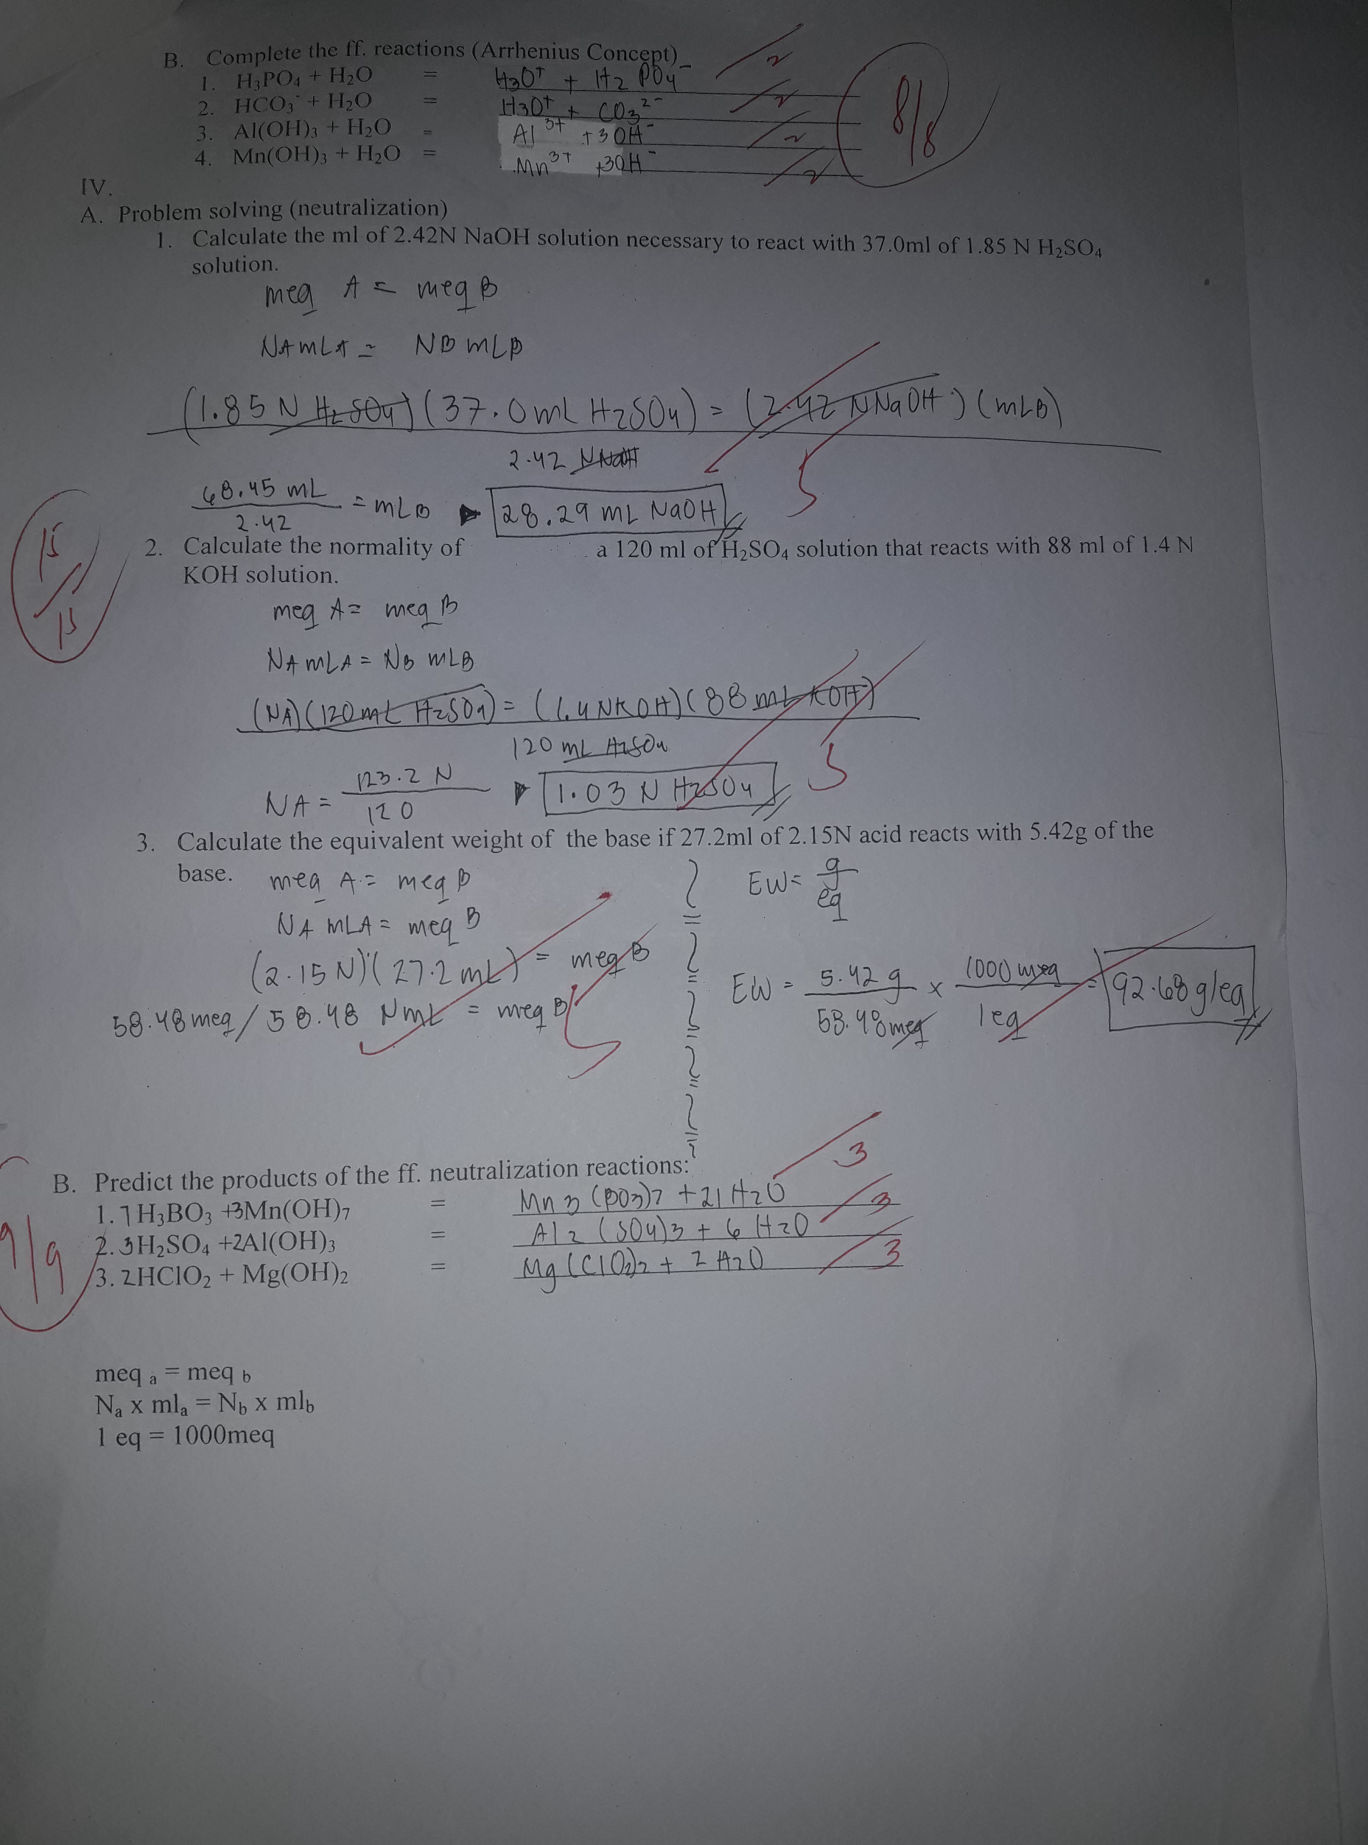 B. Complete the ff. reactions (Arrhenius Concept)
1. H₃PO₄ + H₂O = H₃O⁺ + H₂PO₄⁻ 2
2. HCO₃⁻ + H₂O = H₃O⁺ + CO₃²⁻ 2
3. Al(OH)₃ + H₂O = Al³⁺ + 3OH⁻ 2
4. Mn(OH)₃ + H₂O = Mn³⁺ + 3OH⁻ 2
8/8
IV.
A. Problem solving (neutralization)
1. Calculate the ml of 2.42N NaOH solution necessary to react with 37.0ml of 1.85 N H₂SO₄
solution.
meq A = meq B
NAmLA = NB mLB
(1.85 N H₂SO₄)(37.0 mL H₂SO₄) = (2.42 N NaOH)(mLB)
2.42 N NaOH 5
68.45 mL
2.42
= mLB ▶ 28.29 mL NaOH
15/15
2. Calculate the normality of a 120 ml of H₂SO₄ solution that reacts with 88 ml of 1.4 N
KOH solution.
meq A = meq B
NAmLA = NB mLB
(NA)(120mL H₂SO₄) = (1.4 N KOH)(88 mL KOH)
120 mL H₂SO₄ 5
NA = 123.2 N
120
▶ 1.03 N H₂SO₄
3. Calculate the equivalent weight of the base if 27.2ml of 2.15N acid reacts with 5.42g of the
base.
meq A = meq B
NA mLA = meq B
(2.15 N)(27.2 mL) = meq B
58.48 meq / 58.48 NmL = meq B
5
EW = g/eq
EW = 5.42 g / 58.48 meq x 1000 meq / 1 eq = 92.68 g/eq
B. Predict the products of the ff. neutralization reactions:
1. 7H₃BO₃ +3Mn(OH)₇ = Mn₃(BO₃)₇ + 21H₂O 3
2. 3H₂SO₄ +2Al(OH)₃ = Al₂(SO₄)₃ + 6H₂O 3
3. 2HClO₂ + Mg(OH)₂ = Mg(ClO₂)₂ + 2H₂O 3
9/9
meq a = meq b
Nₐ x mlₐ = N_b x ml_b
1 eq = 1000meq